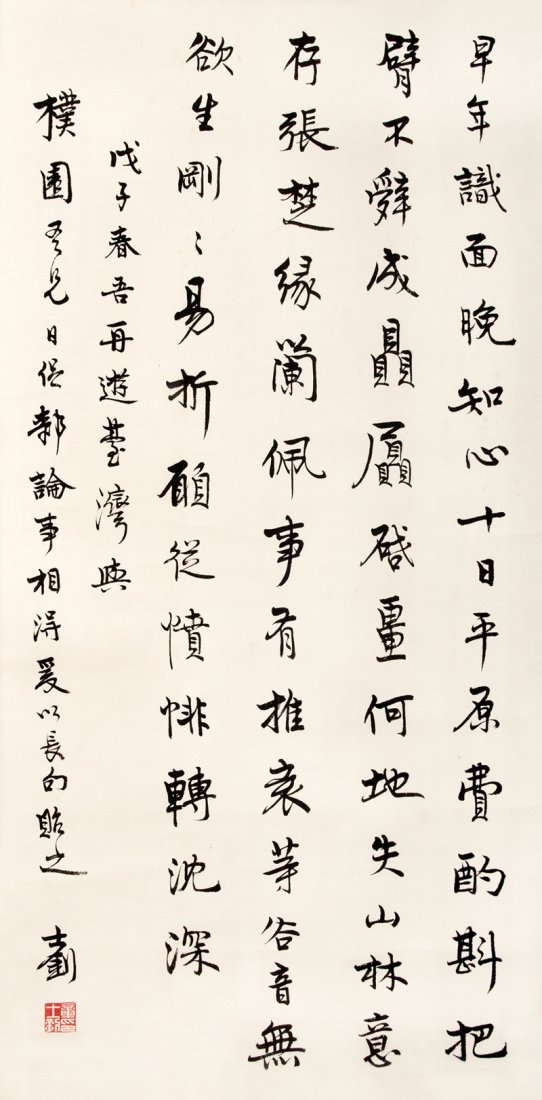 早年識面晚知心十日平原費酌斟把
臂不辤成贔屭啟疆何地失山林意
存張楚緣蘭佩事有推袁等谷音無
欲生剛〻易折願從憤悱轉沈深
戊子春吾再遊臺灣與
樸園吾兄日促鄰論事相得爰以長句貽之
士釗